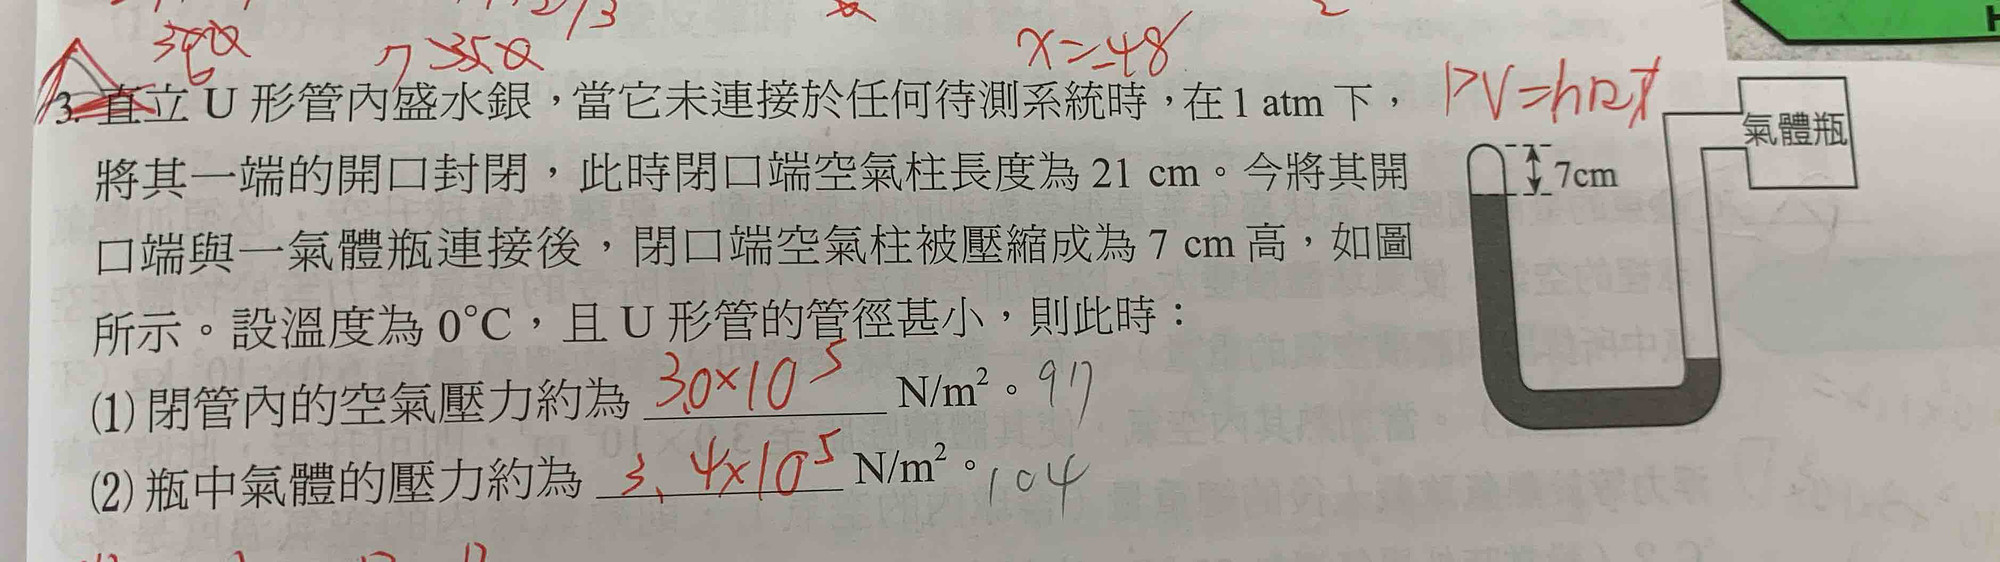 x=-48
PV=nRT
3. 直立 U 形管內盛水銀，當它未連接於任何待測系統時，在 1 atm 下，
將其一端的開口封閉，此時閉口端空氣柱長度為 21 cm。今將其開
口端與一氣體瓶連接後，閉口端空氣柱被壓縮成為 7 cm 高，如圖
所示。設溫度為 0°C，且 U 形管的管徑甚小，則此時：
(1) 閉管內的空氣壓力約為 3.0×10⁵ N/m²。917
(2) 瓶中氣體的壓力約為 3.4×10⁵ N/m²。104
氣體瓶
7cm